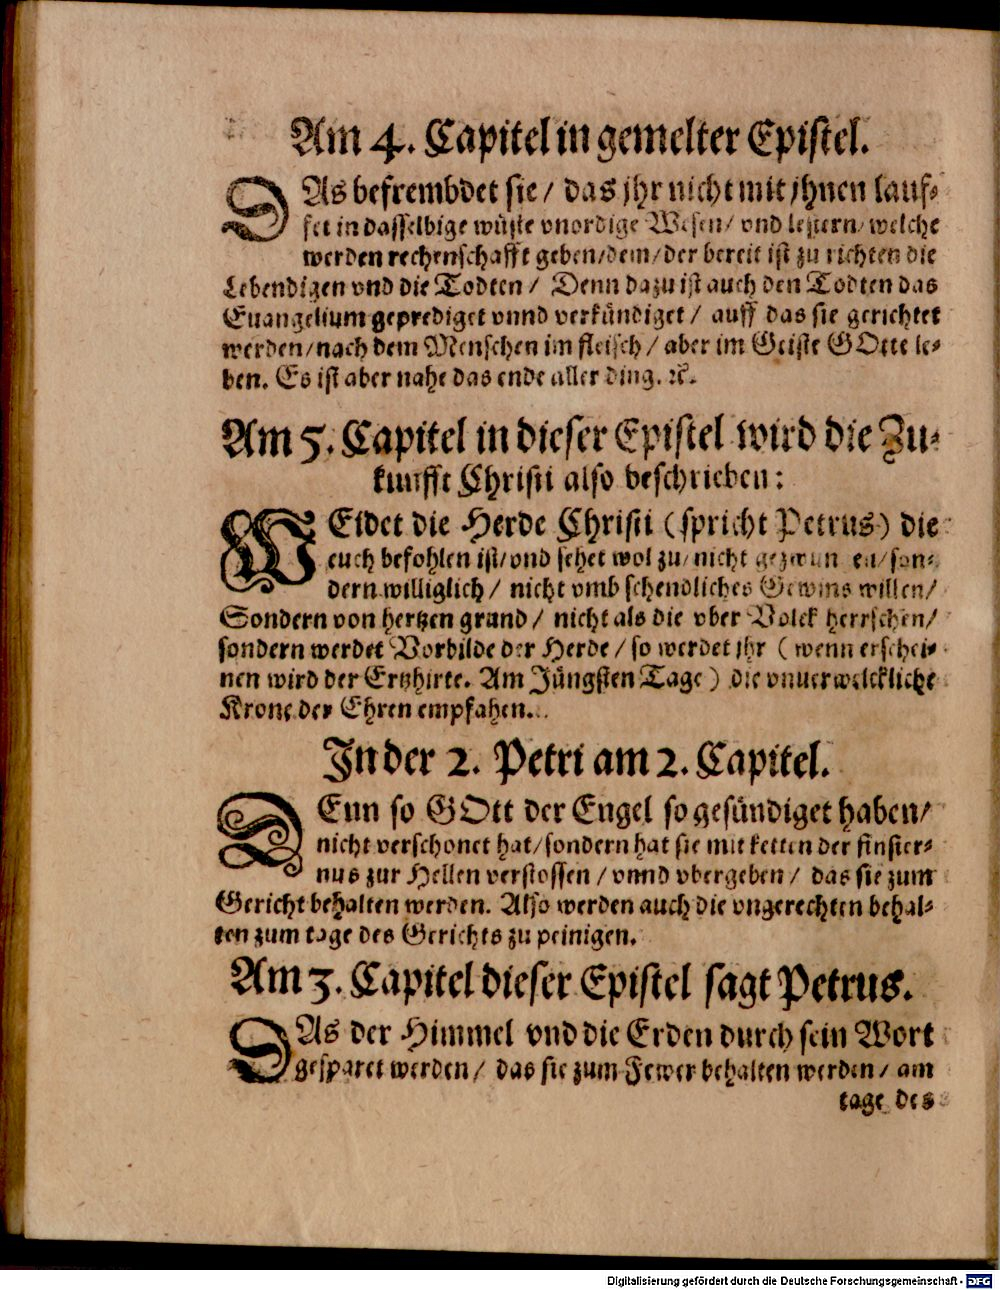 Am 4. Capitel in gemelter Epistel.
DAs befrembdet sie / das jhr nicht mit jhnen lauf-
fet in dasselbige wüste vnordige Wesen / vnd lestern / welche
werden rechenschafft geben / dem / der bereit ist zu richten die
Lebendigen vnd die Todten / Denn dazu ist auch den Todten das
Euangelium geprediget vnnd verkündiget / auff das sie gerichtet
werden / nach dem Menschen im fleisch / aber im Geiste GOtte le-
ben. Es ist aber nahe das ende aller ding. ꝛc.
Am 5. Capitel in dieser Epistel wird die Zu-
kunfft Christi also beschrieben:
WEidet die Herde Christi (spricht Petrus) die
euch befohlen ist / vnd sehet wol zu / nicht gezwungen / son-
dern williglich / nicht vmb schendliches Gewins willen /
Sondern von hertzen grund / nicht als die vber Volck herrschen /
sondern werdet Vorbilde der Herde / so werdet jhr (wenn erschei-
nen wird der Ertzhirte. Am Jüngsten Tage) die vnuerwelckliche
Krone der Ehren empfahen.
In der 2. Petri am 2. Capitel.
DEnn so GOtt der Engel so gesündiget haben /
nicht verschonet hat / sondern hat sie mit ketten der finster-
nus zur Hellen verstossen / vnnd vbergeben / das sie zum
Gericht behalten werden. Also werden auch die vngerechten behal-
ten zum tage des Gerichts zu peinigen.
Am 3. Capitel dieser Epistel sagt Petrus.
DAs der Himmel vnd die Erden durch sein Wort
gesparet werden / das sie zum Fewer behalten werden / am
tage des
Digitalisierung gefördert durch die Deutsche Forschungsgemeinschaft - DFG